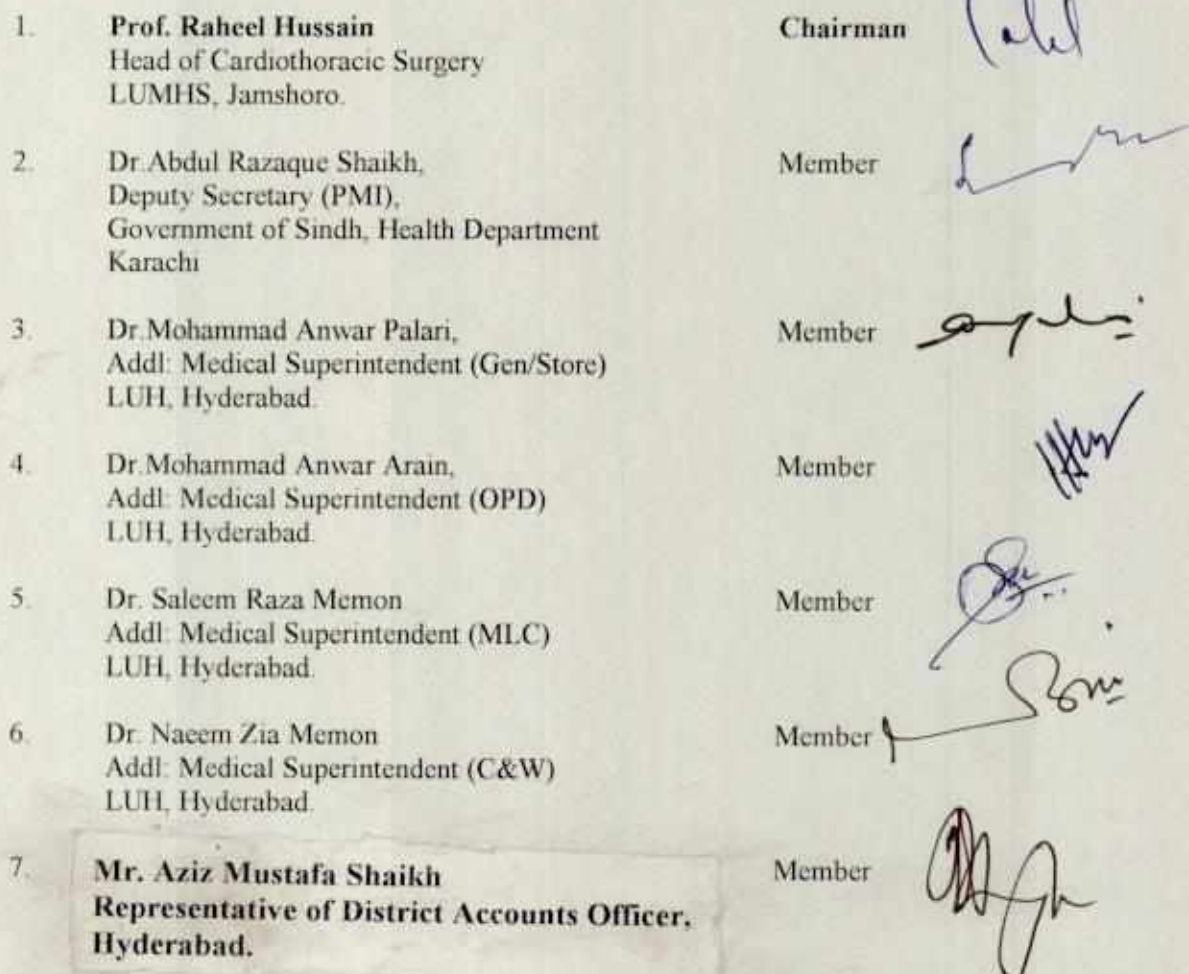 1. Prof. Raheel Hussain Chairman
Head of Cardiothoracic Surgery
LUMHS, Jamshoro.
2. Dr.Abdul Razaque Shaikh, Member
Deputy Secretary (PMI),
Government of Sindh, Health Department
Karachi
3. Dr.Mohammad Anwar Palari, Member
Addl: Medical Superintendent (Gen/Store)
LUH, Hyderabad.
4. Dr.Mohammad Anwar Arain, Member
Addl: Medical Superintendent (OPD)
LUH, Hyderabad.
5. Dr. Saleem Raza Memon Member
Addl: Medical Superintendent (MLC)
LUH, Hyderabad.
6. Dr. Naeem Zia Memon Member
Addl: Medical Superintendent (C&W)
LUH, Hyderabad.
7. Mr. Aziz Mustafa Shaikh Member
Representative of District Accounts Officer,
Hyderabad.